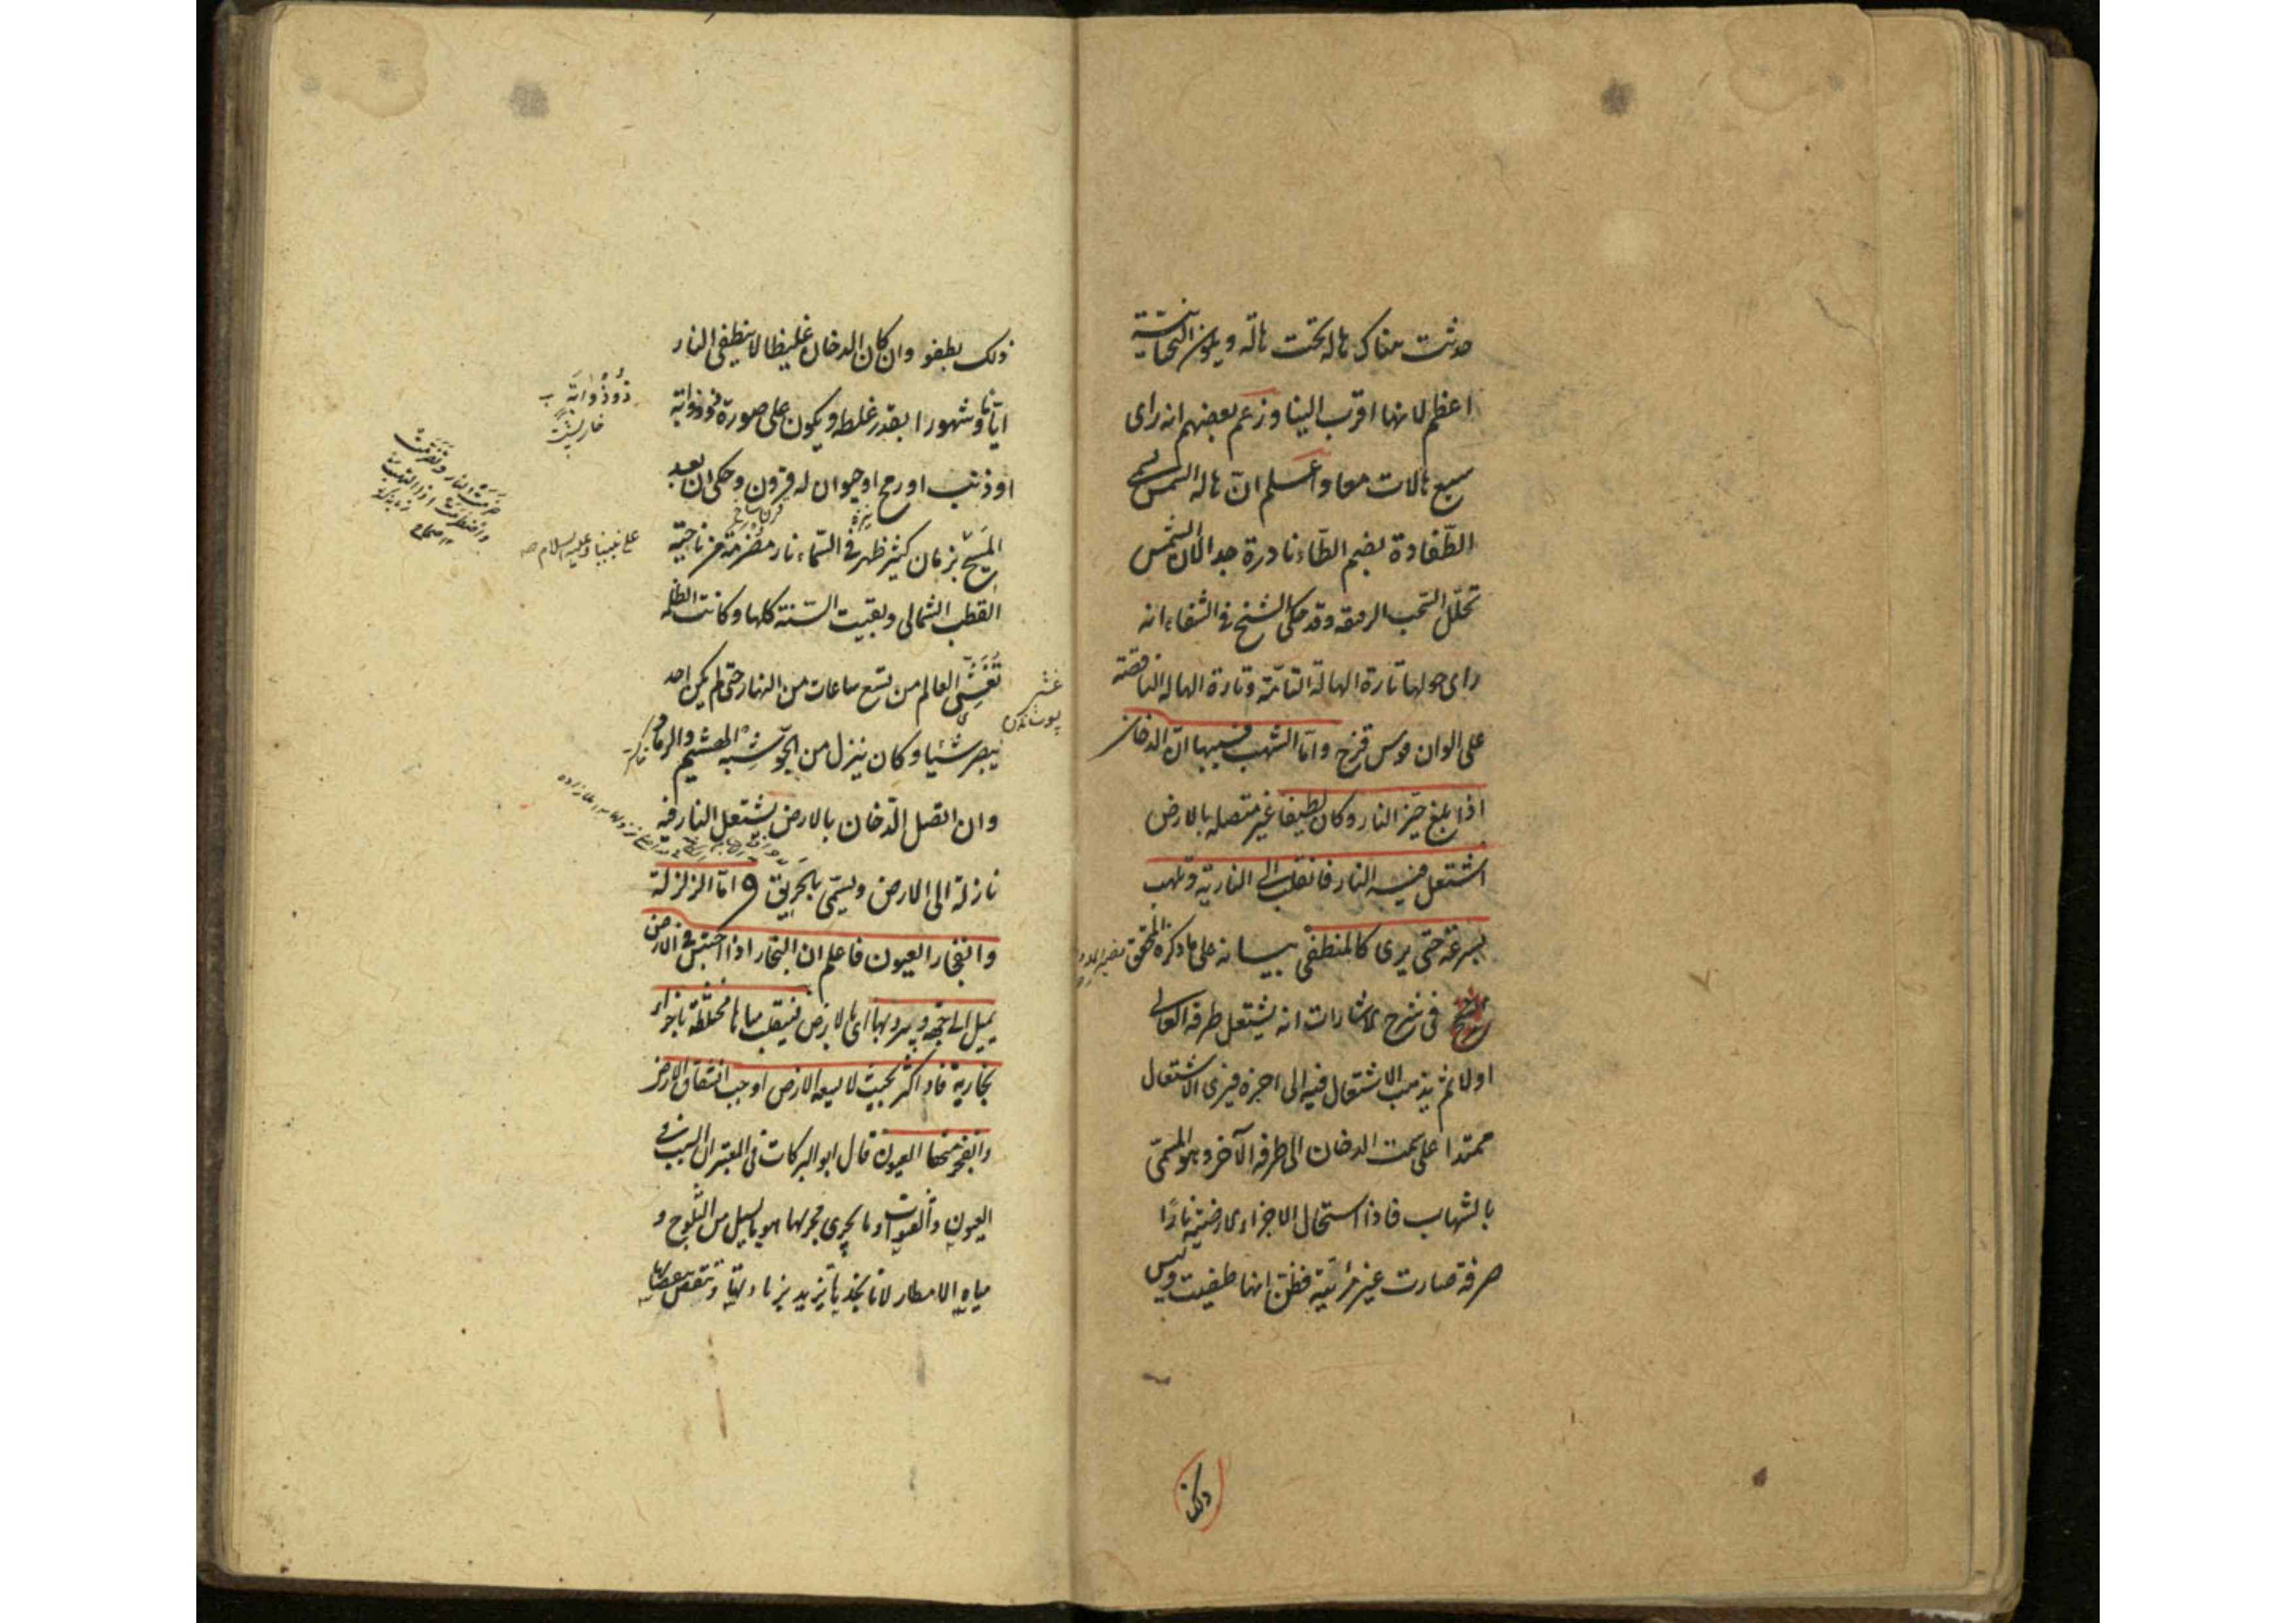 حدثت هناك هالة تحت هالة ويكون التحتانية
اعظم لانها اقرب الينا وزعم بعضهم انه راى
سبع هالات معا واعلم ان هالة الشمس تسمى
الطفاوة بضم الطاء نادرة جدا لان الشمس
تحلل السحب الرقيقة وقد حكى الشيخ فى الشفاء انه
راى حولها تارة الهالة التامة وتارة الهالة الناقصة
على الوان قوس قزح واما الشهب فسببها ان الدخان
اذا بلغ حيز النار وكان لطيفا غير متصلة بالارض
اشتعل فيه النار فانقلب الى النارية وتلهب
بسرعة حتى يرى كالمنطفى بيانه على ما ذكره المحقق
فى شرح الاشارات انه يشتعل طرفه العالى
اولا ثم يذهب الاشتعال فيه الى اخره فيرى الاشتعال
ممتدا على سمت الدخان الى طرفه الآخر وهو المسمى
بالشهاب فاذا استحال الاجزاء الارضية نارًا
صرفة صارت غير مرئية فظن انها طفيت وليس
ذلك
ذلك بطفو وان كان الدخان غليظا لا ينطفى النار
اياما وشهورا بقدر غلظه ويكون على صورة ذو ذوابة
او ذنب او رمح او حيوان له قرون وحكى ان بعد
المسيح بزمان كثير ظهر فى السماء نار مضرمة من ناحية
القطب الشمالى وبقيت السنة كلها وكانت الظلمة
تغشى العالم من تسع ساعات من النهار حتى لم يكن احد
يبصر شيئا وكان ينزل من الجو شبه الهشيم والرماد
وان اتصل الدخان بالارض يشتعل النار فيه
نازلة الى الارض ويسمى بالحريق واما الزلزلة
وانفجار العيون فاعلم ان البخار اذا احتبس فى الارض
يميل الى جهة ويبرد بها اى بالارض فينقلب مياها مختلطة باجزاء
بخارية فاذا كثر بحيث لا يسعه الارض اوجب انشقاق الارض
وانفجر منها العيون قال ابو البركات فى المعتبر ان السبب فى
العيون والقنوات وما يجرى مجراها هو ما يسيل من الثلوج و
مياه الامطار لانا نجدها تزيد بزيادتها وتنقص بنقصانها
ذُو ذُوابَة
خاريشت
على نبينا وعليه السلام صح